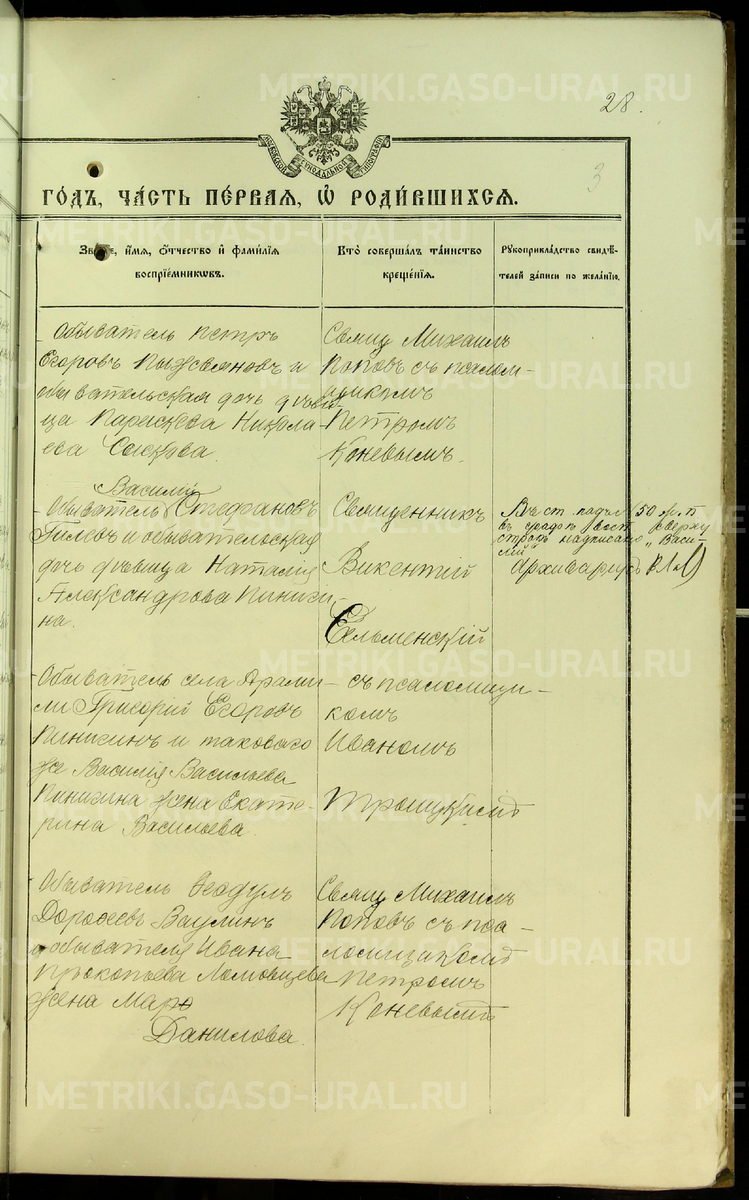 METRIKI.GASO-URAL.RU
28.
МОСКОВСКОЙ СѴНОДАЛЬНОЙ ТИПОГРАФІИ
3
ГО́ДЪ, ЧА́СТЬ ПЕ́РВАЯ, Ѡ҆ РОДИ́ВШИХСЯ.
Зва́ніе, и҆́мя, ѻ҆́тчество и҆ фами́лїя
воспрїе́мникѡвъ.
Кто̀ соверша́лъ та́инство
креще́нїя.
Рꙋкоприкла́дство свидѣ́-
телей за́писи по жела́нїю.
Обыватель Петръ
Егоровъ Пьянковъ и
обывательская дочь дѣви-
ца Параскева Никола-
ева Сыскова.
Свящ. Михаилъ
Поповъ съ псалом-
щикомъ
Петромъ
Коневымъ.
Василій
Обыватель Стефановъ
Гилевъ и обывательская
дочь дѣвица Наталія
Александрова Пиниги-
на.
Священникъ
Викентій
Сельменскій
въ графѣ восп. сверху
строкъ надписано „Васи-
лій"
Архиваріусъ
Обыватель села Арами-
ли Григорій Егоровъ
Пинигинъ и таковаго
же Василія Васильева
Пинигина жена Екате-
рина Васильева.
съ псаломщи-
комъ
Иваномъ
Обыватель Ѳеодулъ
Дороѳеевъ Ваулинъ
и обывателя Ивана
Прокопьева Ломовцева
жена Марѳа
Данилова.
Свящ. Михаилъ
Поповъ съ пса-
ломщикомъ
Петромъ
Коневымъ
METRIKI.GASO-URAL.RU